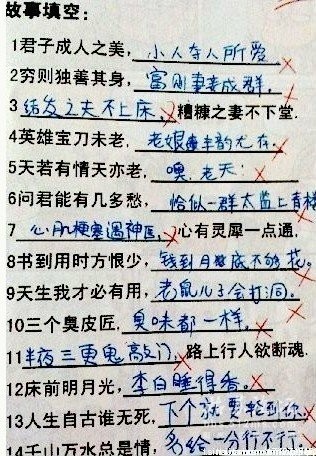 故事填空：
1君子成人之美，小人夺人所爱
2穷则独善其身，富则妻妾成群，
3结发之夫不上床，糟糠之妻不下堂.
4英雄宝刀未老，老娘丰韵尤存。
5天若有情天亦老，噢，老天：
6问君能有几多愁，恰似一群太监上青楼
7心肌梗塞遇神医，心有灵犀一点通，
8书到用时方恨少，钱到月底不够花。
9天生我才必有用，老鼠儿子会打洞。
10三个臭皮匠，臭味都一样，
11半夜三更鬼敲门，路上行人欲断魂.
12床前明月光，李白睡得香。
13人生自古谁无死，下个就要轮到你
14千山万水总是情，多给一分行不行。